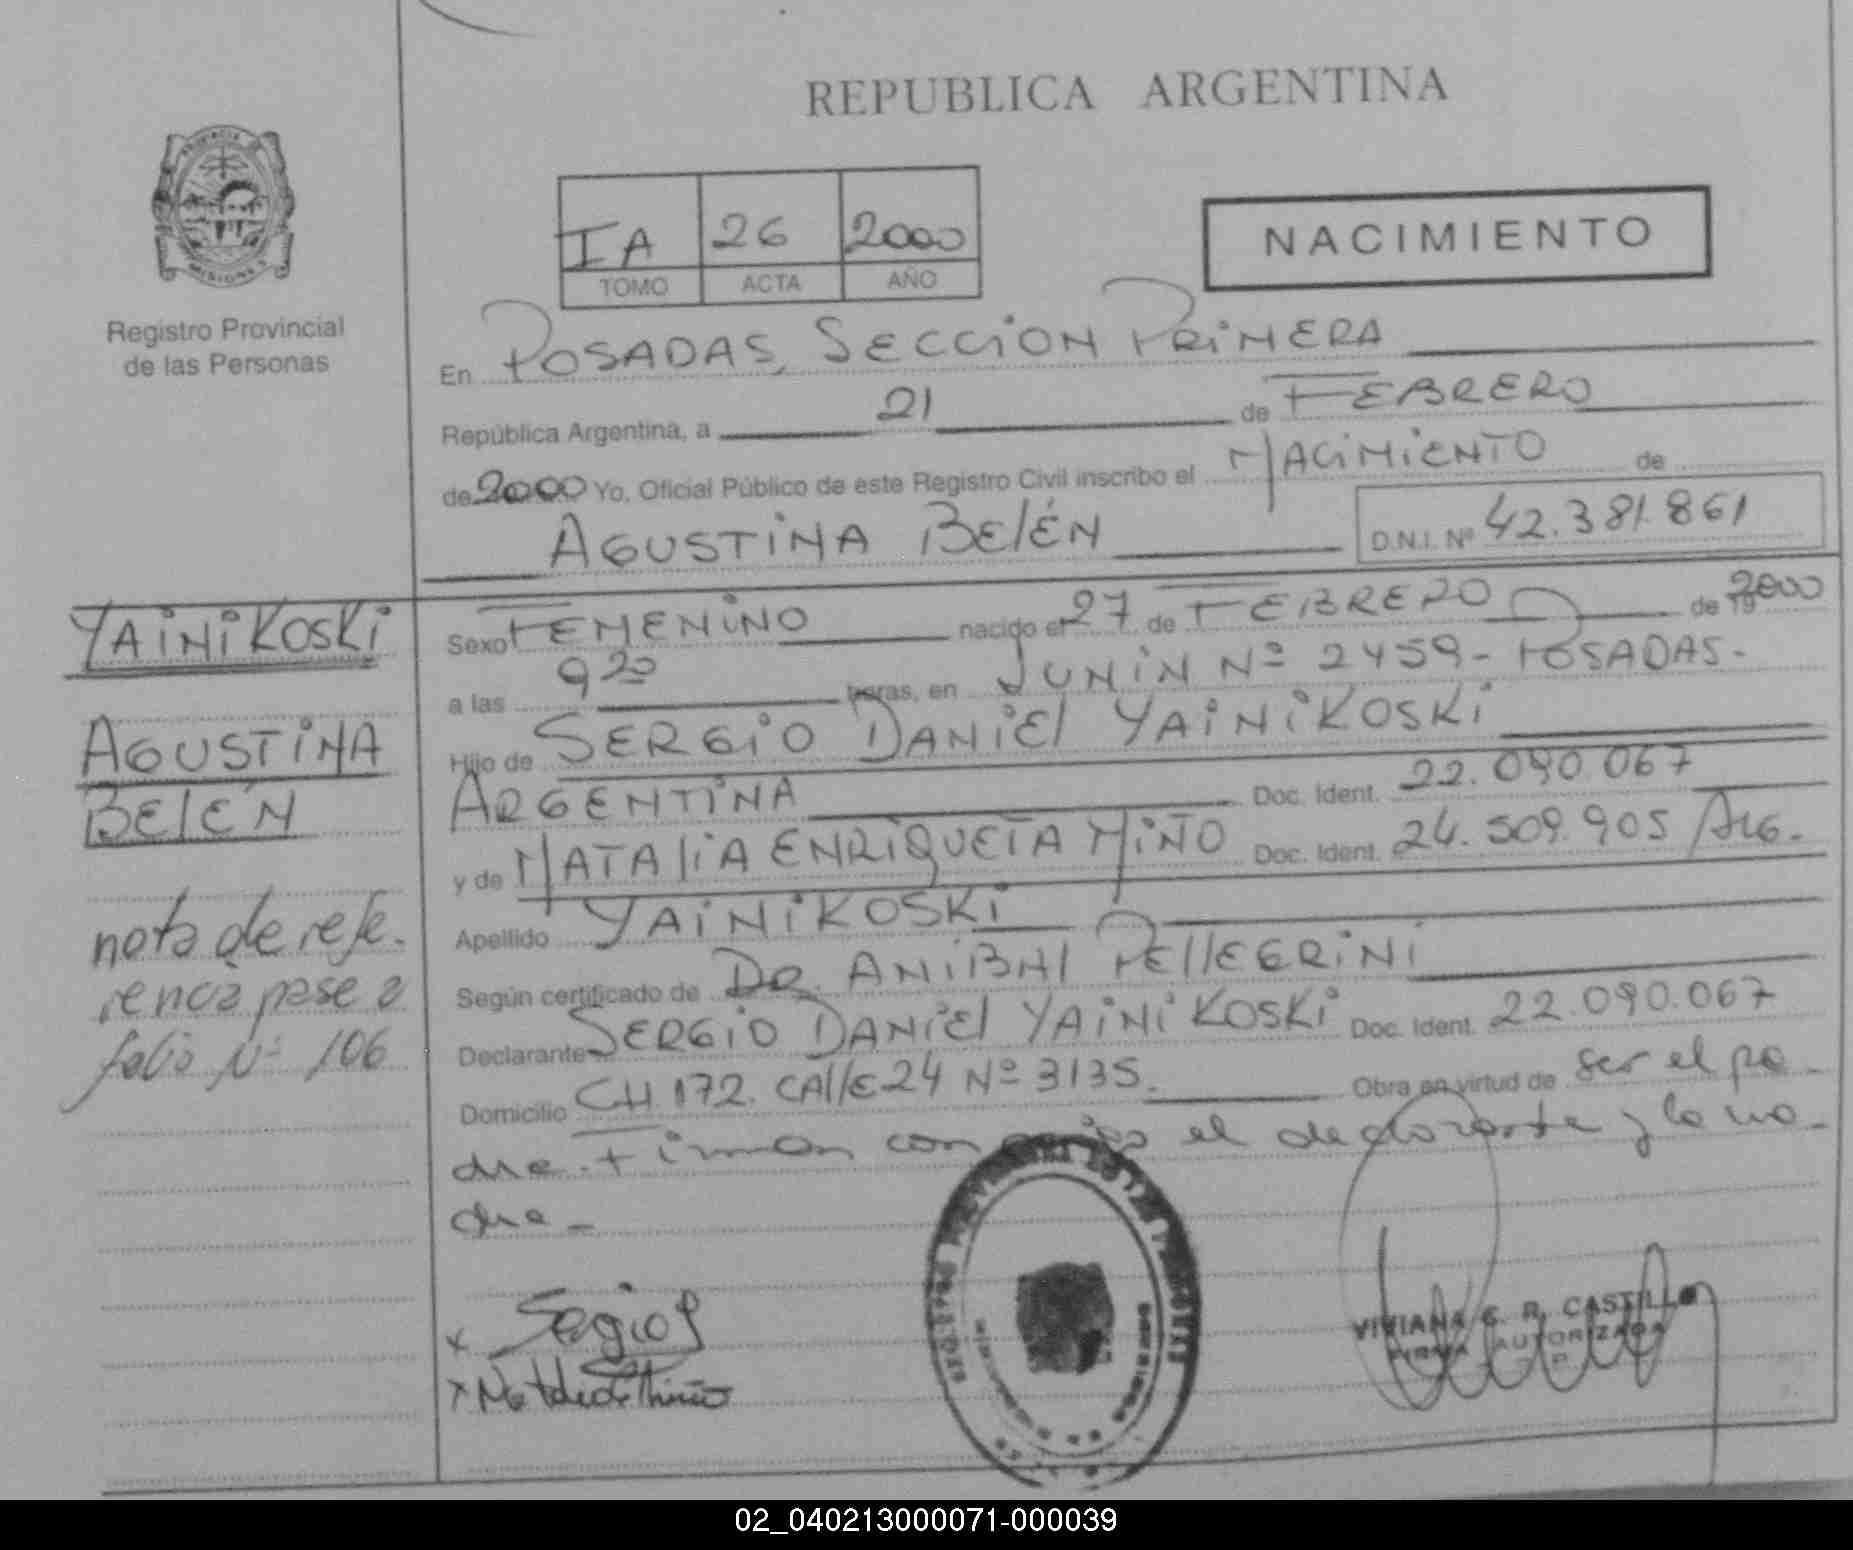 REPUBLICA ARGENTINA
IA 26 2000
TOMO ACTA AÑO
NACIMIENTO
Registro Provincial
de las Personas
En POSADAS, SECCION PRIMERA
República Argentina, a 21 de FEBRERO
de 2000 Yo, Oficial Público de este Registro Civil inscribo el NACIMIENTO de
AGUSTINA BELÉN D.N.I. Nº 42.381.861
YAINIKOSKI
AGUSTINA
BELÉN
nota de refe-
rencia pase a
folio Nº 106
Sexo FEMENINO nacido el 27 de FEBRERO de 19 2000
a las 9 20 horas, en JUNIN Nº 2459 - POSADAS -
Hijo de SERGIO DANIEL YAINIKOSKI
ARGENTINA Doc. Ident. 22.090.067
y de NATALIA ENRIQUETA MIÑO Doc. Ident. 24.509.905 ARG.
Apellido YAINIKOSKI
Según certificado de DR. ANIBAL PELLEGRINI
Declarante SERGIO DANIEL YAINIKOSKI Doc. Ident. 22.090.067
Domicilio CH. 172. CALLE 24 Nº 3135. Obra en virtud de ser el pa-
dre. Firman con el declarante y la ma-
dre -
x Sergio
x Natalia E Miño
VIVIANA G. R. CASTILLO
FIRMA AUTORIZADA
PROVINCIA
MISIONES
02_040213000071-000039